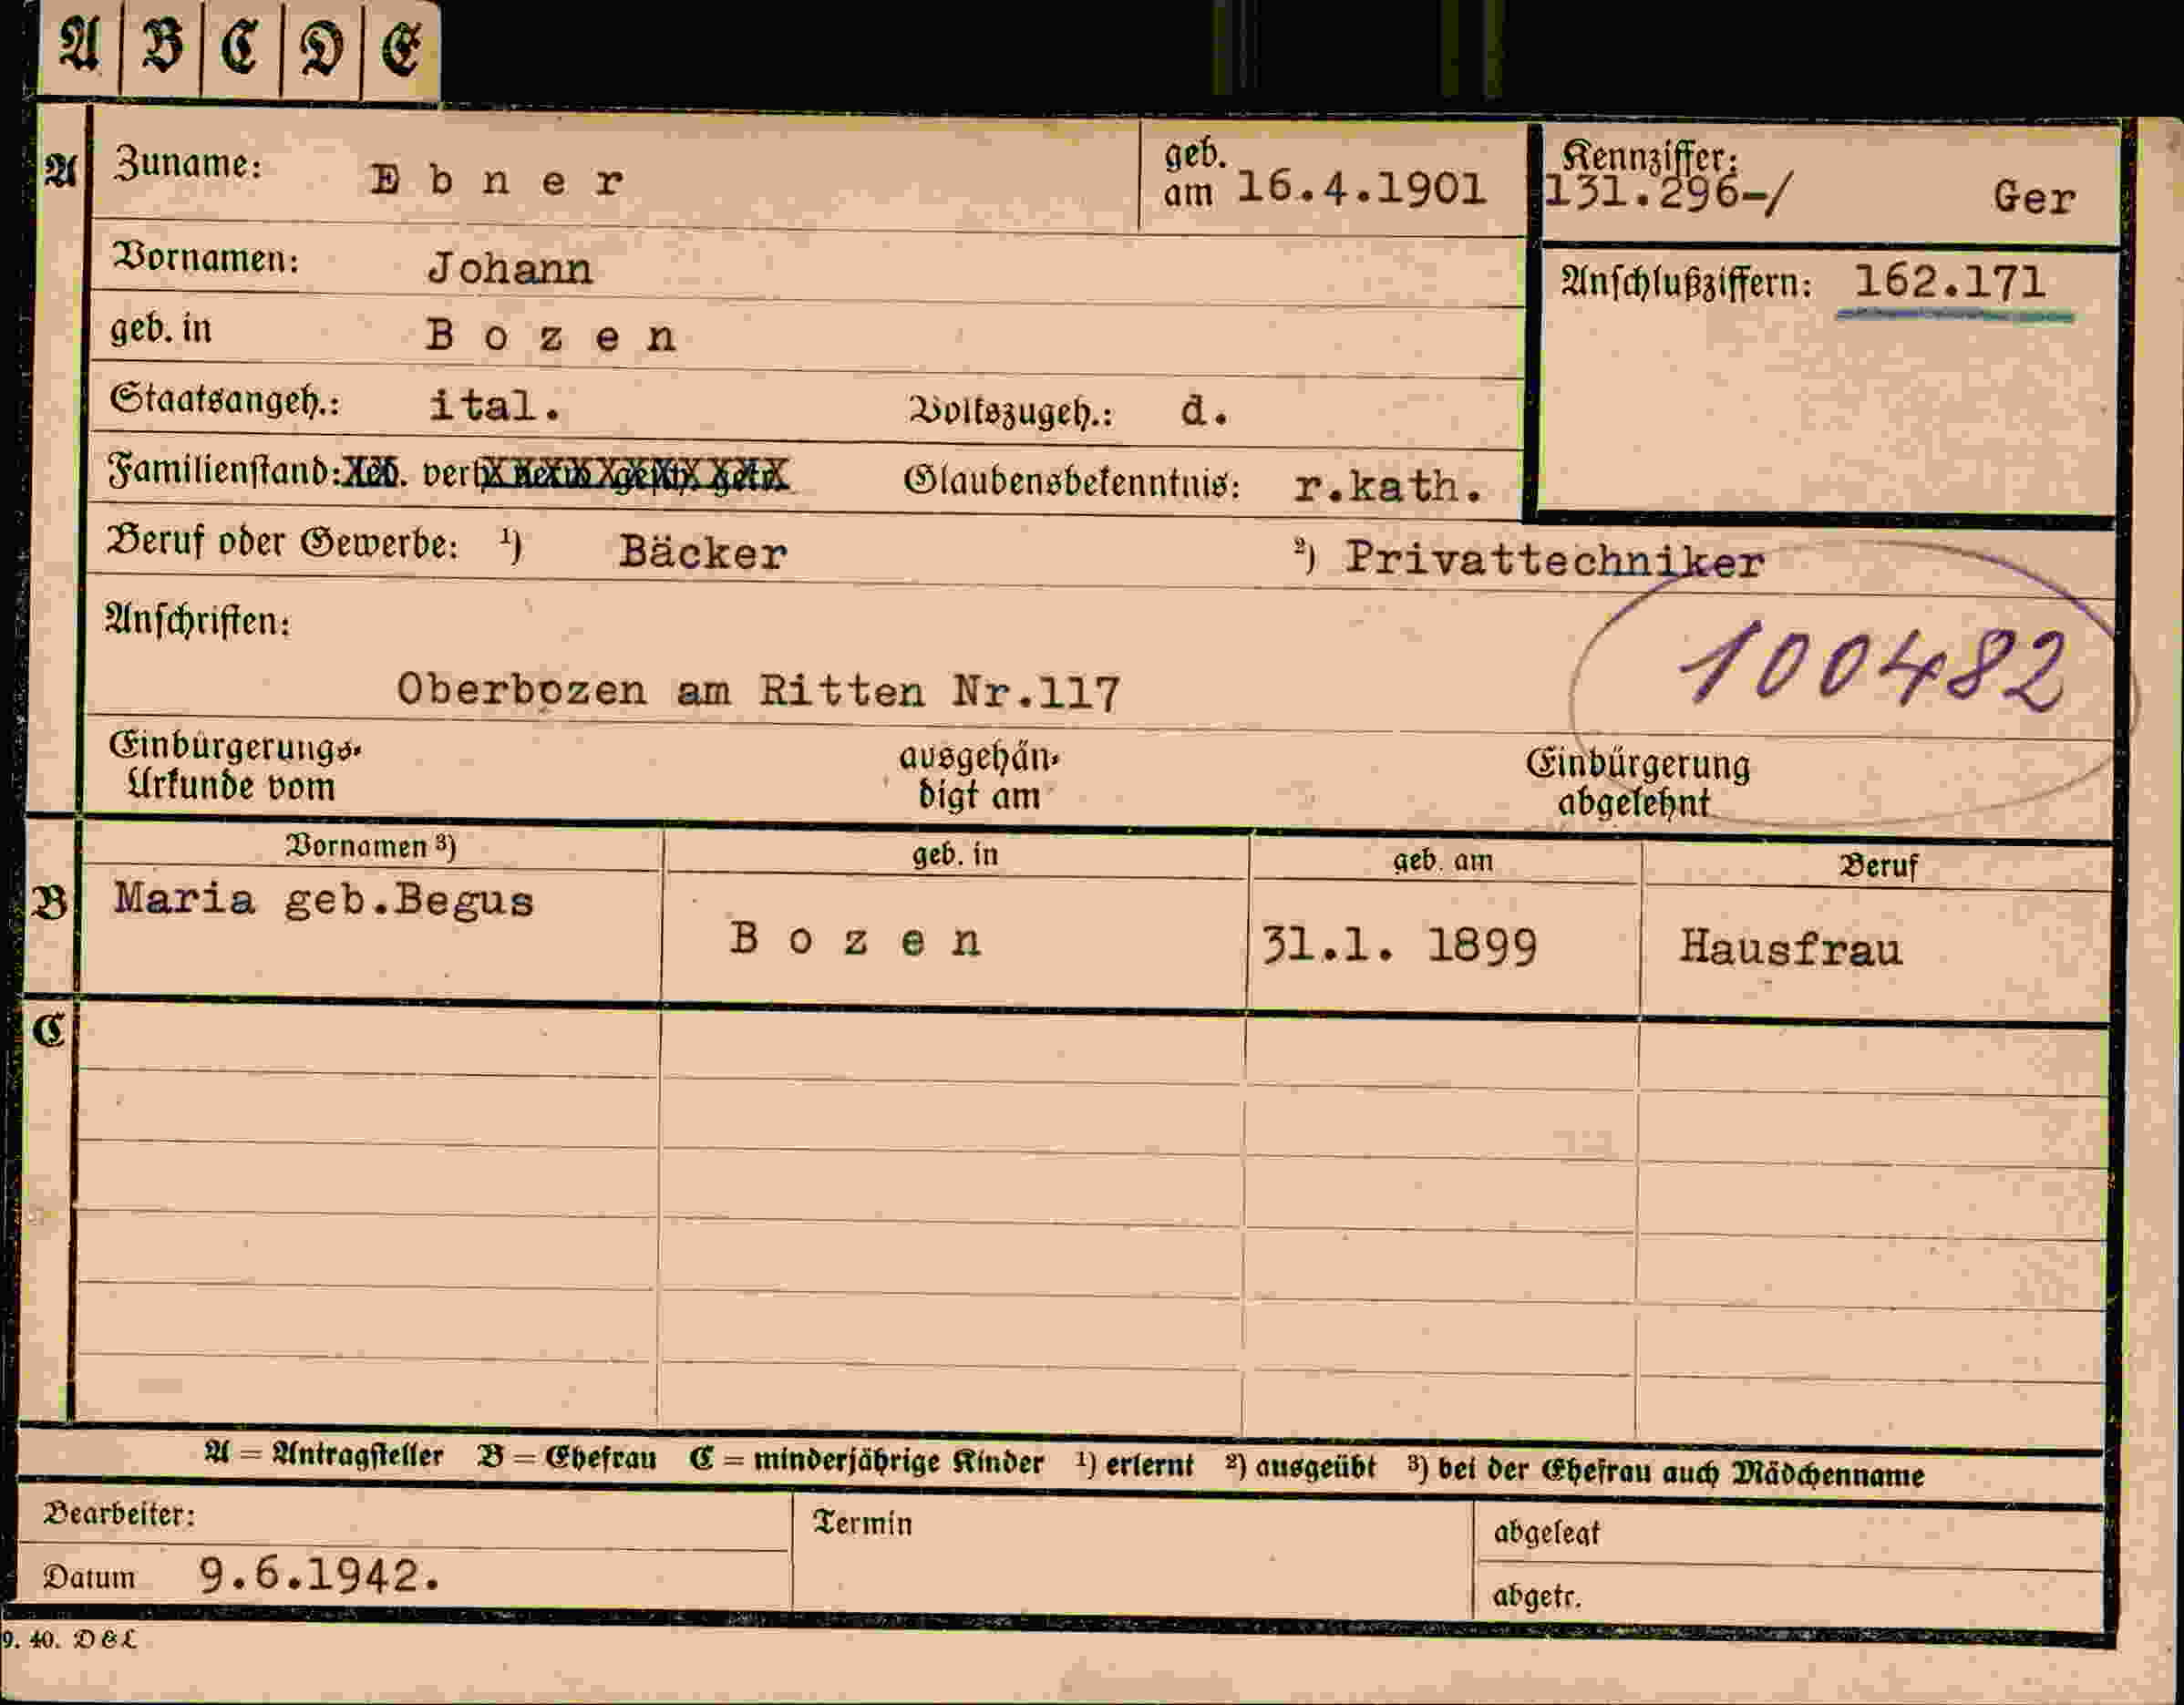 A B C D E
A Zuname: Ebner geb. am 16.4.1901 Kennziffer: 131.296-/ Ger
Vornamen: Johann Anschlußziffern: 162.171
geb. in Bozen
Staatsangeh.: ital. Volkszugeh.: d.
Familienstand: led. verh. Glaubensbekenntnis: r.kath.
Beruf oder Gewerbe: 1) Bäcker 2) Privattechniker
Anschriften:
100482
Oberbozen am Ritten Nr.117
Einbürgerungs- ausgehän- Einbürgerung
Urkunde vom digt am abgelehnt
Vornamen 3) geb. in geb. am Beruf
B Maria geb.Begus Bozen 31.1. 1899 Hausfrau
C
A = Antragsteller B = Ehefrau C = minderjährige Kinder 1) erlernt 2) ausgeübt 3) bei der Ehefrau auch Mädchenname
Bearbeiter: Termin abgelegt
Datum 9.6.1942. abgetr.
9. 40. D & L